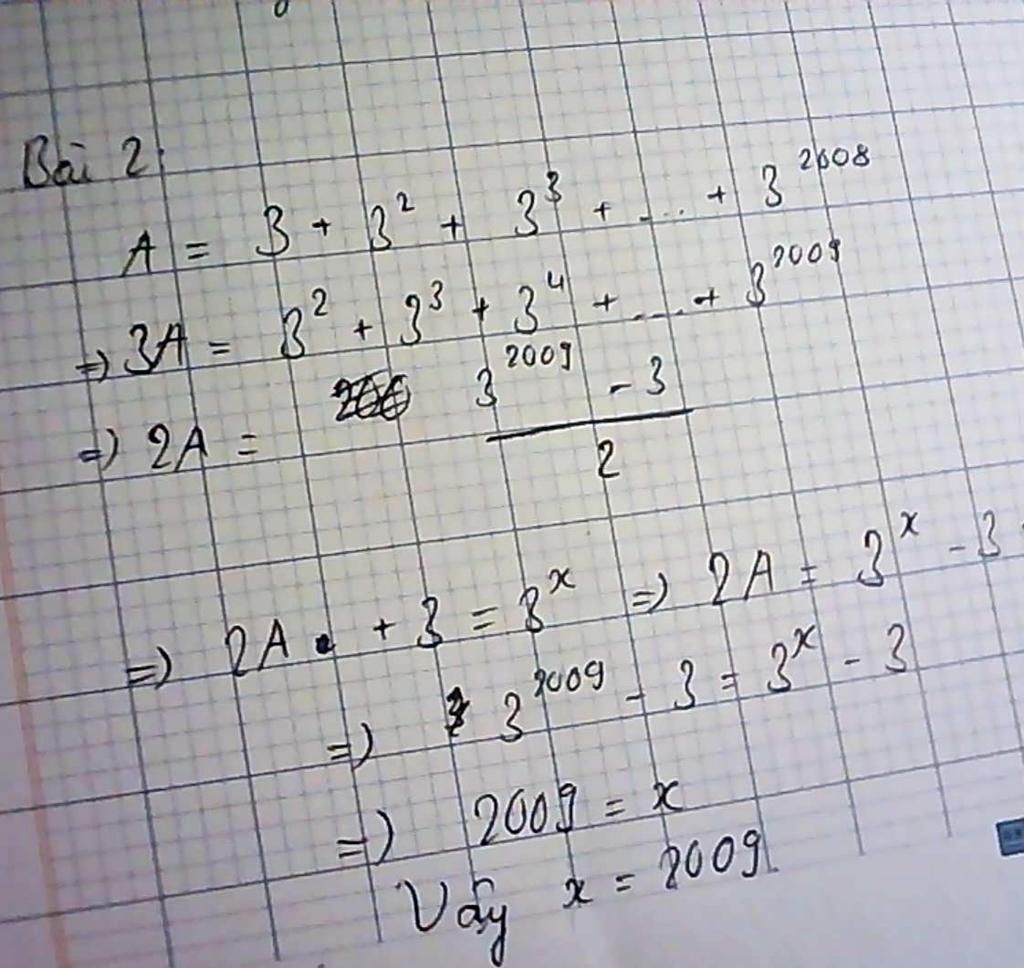 Bài 2:
A = 3 + 3² + 3³ + .... + 3²⁰⁰⁸
=) 3A = 3² + 3³ + 3⁴ + .... + 3²⁰⁰⁹
=) 2A = (3²⁰⁰⁹ - 3)/2
=) 2A + 3 = 3ˣ =) 2A = 3ˣ - 3
=) 3²⁰⁰⁹ - 3 = 3ˣ - 3
=) 2009 = x
Vậy x = 2009